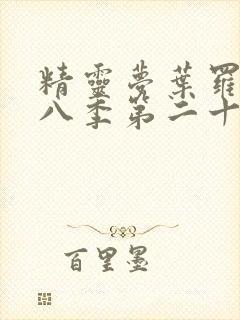 精靈夢葉羅
八季第二十
百里墨